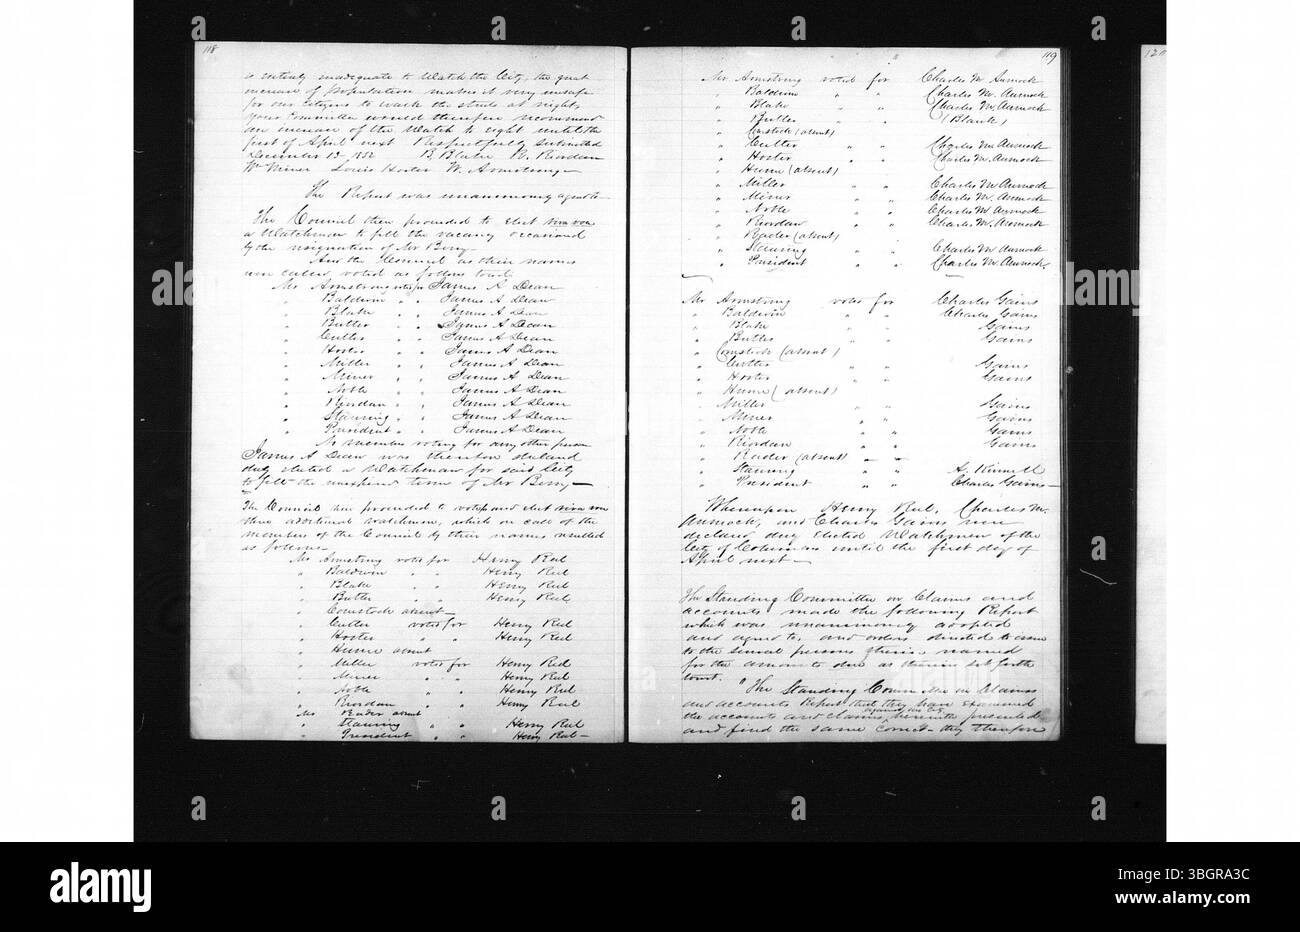 118
is entirely inadequate to Watch the City, the great
increase of population makes it very unsafe
for our citizens to walk the streets at nights
your Committee would therefore recommend
an increase of the Watch to eight until the
first of April next Respectfully submitted
December 13 1852 B. Blake R. Riordan
Wm Miner Louis Hoster W. Armstrong—
The Report was unanimously agreed to
The Council then proceeded to elect viva voce
a Watchman to fill the vacancy occasioned
by the resignation of Mr Berry—
And the Council as their names
were called, voted as follows to wit:
Mr Armstrong votes for James A Dean
" Baldwin " " James A Dean
" Blake " " James A Dean
" Butler " " James A Dean
" Cutler " " James A Dean
" Hoster " " James A Dean
" Miller " " James A Dean
" Miner " " James A Dean
" Noble " " James A Dean
" Riordan " " James A Dean
" Stauring " " James A Dean
" President " " James A Dean
No members voting for any other person
James A Dean was therefore declared
duly elected a Watchman for said City
to fill the unexpired term of Mr Berry—
The Council then proceeded to vote and elect viva voce
three additional watchmen, which on call of the
members of the Council by their names resulted
as follows
Mr Armstrong votes for Henry Reel
" Baldwin " " Henry Reel
" Blake " " Henry Reel
" Butler " " Henry Reel
" Comstock absent—
" Cutler votes for Henry Reel
" Hoster " " Henry Reel
" Hume absent
" Miller votes for Henry Reel
" Miner " " Henry Reel
" Noble " " Henry Reel
" Riordan " " Henry Reel
Mr Reader absent
" Stauring " " Henry Reel
" President " " Henry Reel—
119
Mr Armstrong voted for Charles M Aumock
" Baldwin " " Charles M. Aumock
" Blake " " Charles M Aumock
" Butler (Blank)
" Comstock (absent)
" Cutler " " Charles M Aumock
" Hoster " " Charles M. Aumock
" Hume (absent)
" Miller " " Charles M Aumock
" Miner " " Charles M. Aumock
" Noble " " Charles M Aumock
" Riordan " " Charles M. Aumock
" Reader (absent)
" Stauring " " Charles M Aumock
" President " " Charles M. Aumock.
Mr Armstrong votes for Charles Gains
" Baldwin " " Charles Gains
" Blake " " Gains
" Butler " " Gains
" Comstock (absent)
" Cutler " " Gains
" Hoster " " Gains
" Hume (absent)
" Miller " " Gains
" Miner " " Gains
" Noble " " Gains
" Riordan " " Gains
" Reader (absent) — —
" Stauring " " A.
" President " " Charles Gains—
Whereupon Henry Reel, Charles M.
Aumock, and Charles Gains were
declared duly elected Watchmen of the
City of Columbus until the first day of
April next—
The Standing Committee on Claims and
accounts made the following Report
which was unanimously adopted
and agreed to, and orders directed to issue
to the several persons therein named
for the amounts due as therein set forth
towit. "The Standing Committee on Claims
and accounts Report that they have examined
the accounts and claims against the City herewith presented
and find the same correct— they therefore
120
alamy
Image ID: 3BGRA3C
www.alamy.com